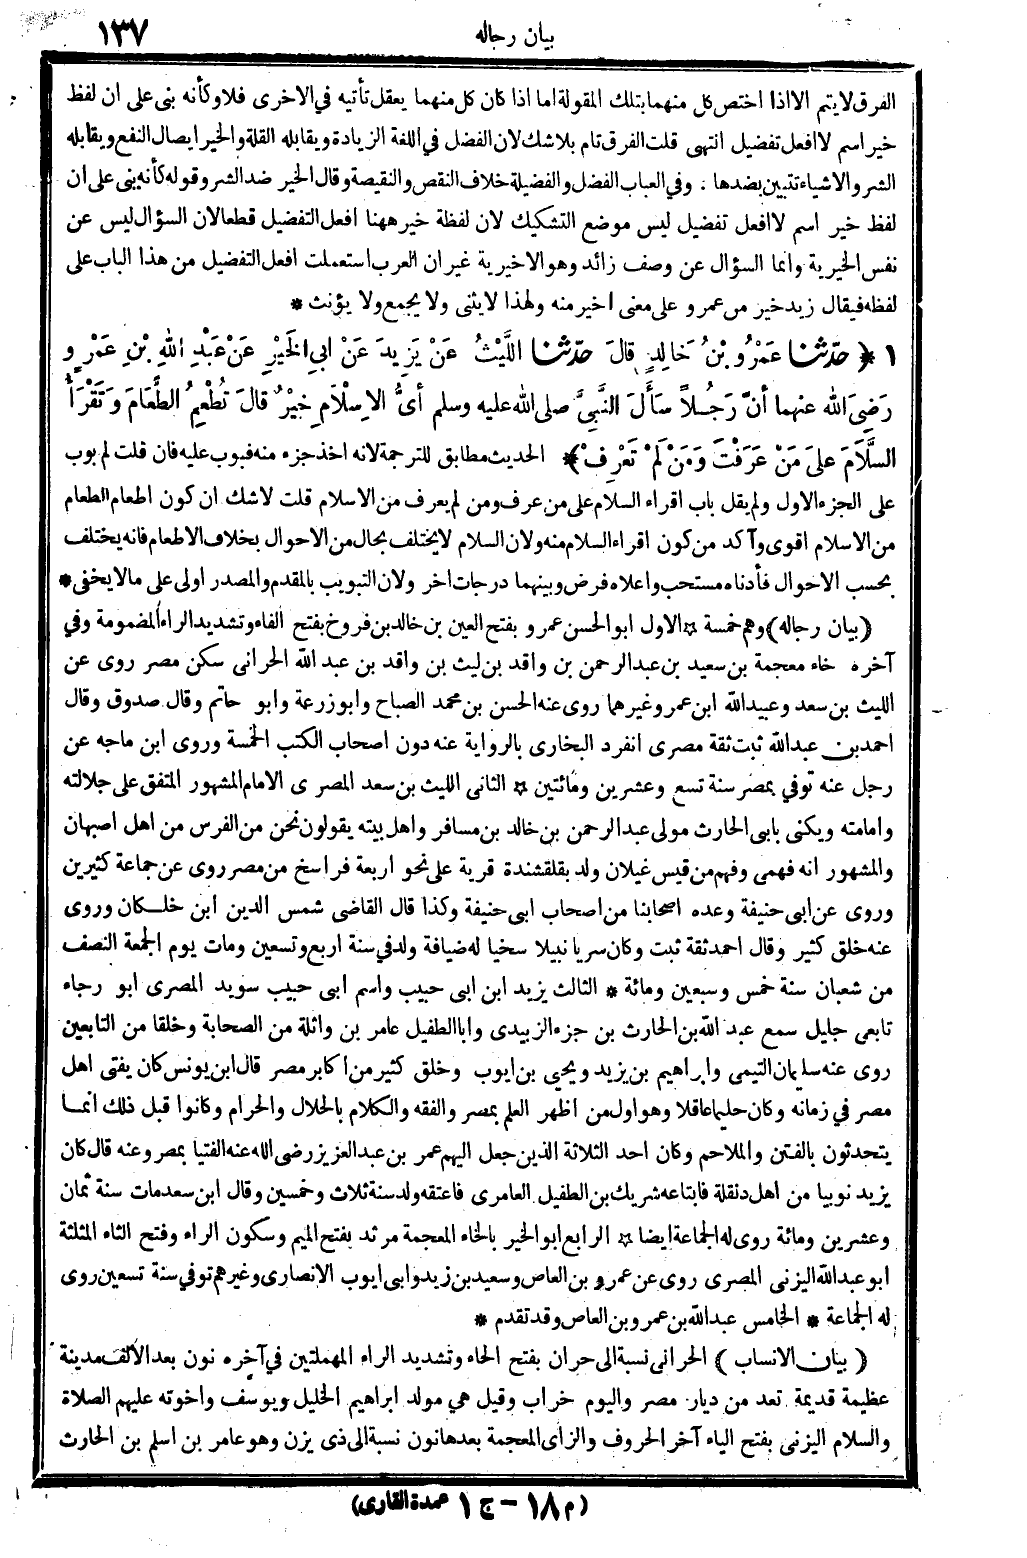 بيان رجاله
١٣٧
الفرق لا يتم الا اذا اختص كل منهما بتلك المقولة اما اذا كان كل منهما يعقل تأتيه في الاخرى فلا وكأنه بنى على ان لفظ
خير اسم لا افعل تفضيل انتهى قلت الفرق تام بلا شك لان الفضل في اللغة الزيادة ويقابله القلة والخير ايصال النفع ويقابله
الشر والاشياء تتبين بضدها . وفي العباب الفضل والفضيلة خلاف النقص والنقيصة وقال الخير ضد الشر وقوله كأنه بنى على ان
لفظ خير اسم لا افعل تفضيل ليس موضع التشكيك لان لفظة خير ههنا افعل التفضيل قطعا لان السؤال ليس عن
نفس الخيرية وانما السؤال عن وصف زائد وهو الاخيرية غير ان العرب استعملت افعل التفضيل من هذا الباب على
لفظه فيقال زيد خير من عمرو على معنى اخير منه ولهذا لا يثنى ولا يجمع ولا يؤنث *
١ ﴿ حَدَّثنا عَمْرُو بْنُ خَالِدٍ قالَ حَدَّثنا اللَّيْثُ عَنْ يَزِيدَ عَنْ ابي الخَيْرِ عَنْ عَبْدِ اللهِ بْنِ عَمْرٍو
رَضِيَ الله عنهما أنَّ رَجُلاً سَأَلَ النَّبِيَّ صلى الله عليه وسلم أىُّ الاِسْلاَمِ خيْرٌ قالَ تُطْعِمُ الطَّعَامَ وَتَقْرَأُ
السَّلاَمَ علَى مَنْ عرَفْتَ وَمَنْ لَمْ تَعْرِفْ ﴾ * الحديث مطابق للترجمة لانه اخذ جزء منه فبوب عليه فان قلت لم بوب
على الجزء الاول ولم يقل باب اقراء السلام على من عرف ومن لم يعرف من الاسلام قلت لا شك ان كون اطعام الطعام
من الاسلام اقوى وآكد من كون اقراء السلام منه ولان السلام لا يختلف بحال من الاحوال بخلاف الاطعام فانه يختلف
بحسب الاحوال فأدناه مستحب واعلاه فرض وبينهما درجات اخر ولان التبويب بالمقدم والمصدر اولى على مالا يخفى *
(بيان رجاله) وهم خمسة ☆ الاول ابو الحسن عمرو بفتح العين بن خالد بن فروخ بفتح الفاء وتشديد الراء المضمومة وفي
آخره خاء معجمة بن سعيد بن عبد الرحمن بن واقد بن ليث بن واقد بن عبد الله الحرانى سكن مصر روى عن
الليث بن سعد وعبيد الله ابن عمر وغيرهما روى عنه الحسن بن محمد الصباح وابو زرعة وابو حاتم وقال صدوق وقال
احمد بن عبدالله ثبت ثقة مصرى انفرد البخارى بالرواية عنه دون اصحاب الكتب الخمسة وروى ابن ماجه عن
رجل عنه توفي بمصر سنة تسع وعشرين ومائتين ☆ الثانى الليث بن سعد المصرى الامام المشهور المتفق على جلالته
وامامته ويكنى بابى الحارث مولى عبد الرحمن بن خالد بن مسافر واهل بيته يقولون نحن من الفرس من اهل اصبهان
والمشهور انه فهمى وفهم من قيس غيلان ولد بقلقشندة قرية على نحو اربعة فراسخ من مصر روى عن جماعة كثيرين
وروى عن ابى حنيفة وعده اصحابنا من اصحاب ابى حنيفة وكذا قال القاضى شمس الدين ابن خلكان وروى
عنه خلق كثير وقال احمد ثقة ثبت وكان سريا نبيلا سخيا له ضيافة ولد في سنة اربع وتسعين ومات يوم الجمعة النصف
من شعبان سنة خمس وسبعين ومائة * الثالث يزيد ابن ابى حبيب واسم ابى حبيب سويد المصرى ابو رجاء
تابعى جليل سمع عبد الله بن الحارث بن جزء الزبيدى وابا الطفيل عامر بن واثلة من الصحابة وخلقا من التابعين
روى عنه سليمان التيمى وابراهيم بن يزيد ويحيى بن ايوب وخلق كثير من اكابر مصر قال ابن يونس كان يفتى اهل
مصر في زمانه وكان حليما عاقلا وهو اول من اظهر العلم بمصر والفقه والكلام بالحلال والحرام وكانوا قبل ذلك انما
يتحدثون بالفتن والملاحم وكان احد الثلاثة الذين جعل اليهم عمر بن عبد العزيز رضى الله عنه الفتيا بمصر وعنه قال كان
يزيد نوبيا من اهل دنقلة فابتاعه شريك بن الطفيل العامرى فاعتقه ولد سنة ثلاث وخمسين وقال ابن سعد مات سنة ثمان
وعشرين ومائة روى له الجماعة ايضا ☆ الرابع ابو الخير بالخاء المعجمة مرثد بفتح الميم وسكون الراء وفتح الثاء المثلثة
ابو عبد الله اليزنى المصرى روى عن عمرو بن العاص وسعيد بن زيد وابى ايوب الانصارى وغيرهم توفي سنة تسعين روى
له الجماعة * الخامس عبد الله بن عمرو بن العاص وقد تقدم *
( بيان الانساب ) الحرانى نسبة الى حران بفتح الحاء وتشديد الراء المهملتين في آخره نون بعد الألف مدينة
عظيمة قديمة تعد من ديار مصر واليوم خراب وقيل هي مولد ابراهيم الخليل ويوسف واخوته عليهم الصلاة
والسلام اليزنى بفتح الياء آخر الحروف والزاى المعجمة بعدها نون نسبة الى ذى يزن وهو عامر بن اسلم بن الحارث
(م ١٨ - ج ١ عمدة القارى)